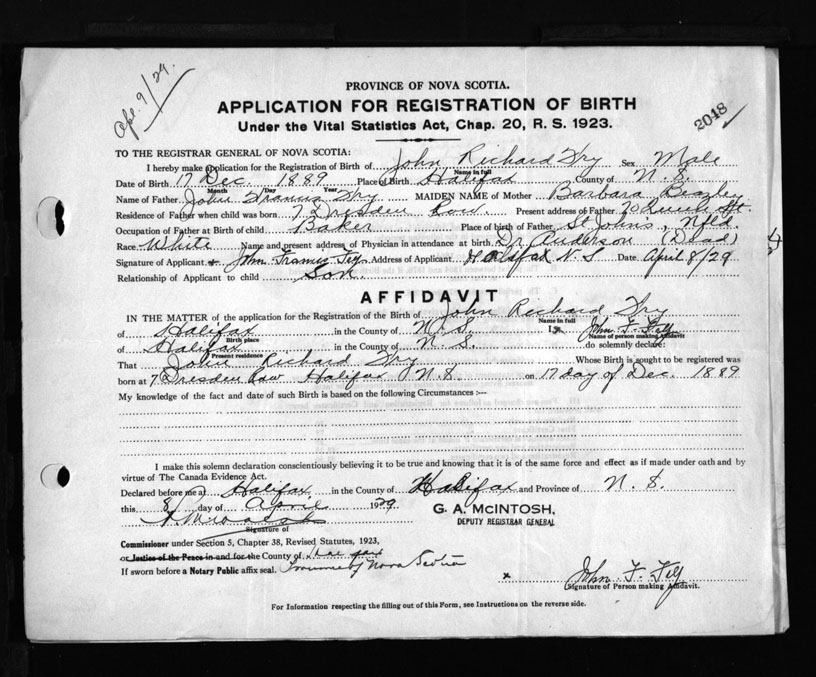 Apl. 9/29.
PROVINCE OF NOVA SCOTIA.
APPLICATION FOR REGISTRATION OF BIRTH
Under the Vital Statistics Act, Chap. 20, R. S. 1923.
2048
TO THE REGISTRAR GENERAL OF NOVA SCOTIA:
I hereby make application for the Registration of Birth of John Richard Fry Sex Male
Name in full
Date of Birth 17 Dec 1889 Place of Birth Halifax County of N. S.
Month Day Year
Name of Father John Francis Fry MAIDEN NAME of Mother Barbara Beazley
Residence of Father when child was born 7 Dresden Row. Present address of Father 70 St.
Occupation of Father at Birth of child Baker Place of birth of Father St. Johns, Nfld.
Race White Name and present address of Physician in attendance at birth Dr. Anderson (Dead)
Signature of Applicant John Francis Fry Address of Applicant Halifax N. S Date April 8/29
Relationship of Applicant to child Son.
AFFIDAVIT
IN THE MATTER of the application for the Registration of the Birth of John Richard Fry
Name in full
of Halifax in the County of N. S. I, John F. Fry
Birth place Name of person making Affidavit
of Halifax in the County of N. S. do solemnly declare:
Present residence
That John Richard Fry Whose Birth is sought to be registered was
born at 7 Dresden Row Halifax N. S. on 17 day of Dec. 1889
My knowledge of the fact and date of such Birth is based on the following Circumstances :—
I make this solemn declaration conscientiously believing it to be true and knowing that it is of the same force and effect as if made under oath and by
virtue of The Canada Evidence Act.
Declared before me at Halifax in the County of Halifax and Province of N. S.
this 8 day of April 1929
G. A. McINTOSH,
DEPUTY REGISTRAR GENERAL
Signature of
Commissioner under Section 5, Chapter 38, Revised Statutes, 1923,
or Justice of the Peace in and for the County of Halifax
If sworn before a Notary Public affix seal. Province of Nova Scotia
x John F. Fry
(Signature of Person making Affidavit.
For Information respecting the filling out of this Form, see Instructions on the reverse side.